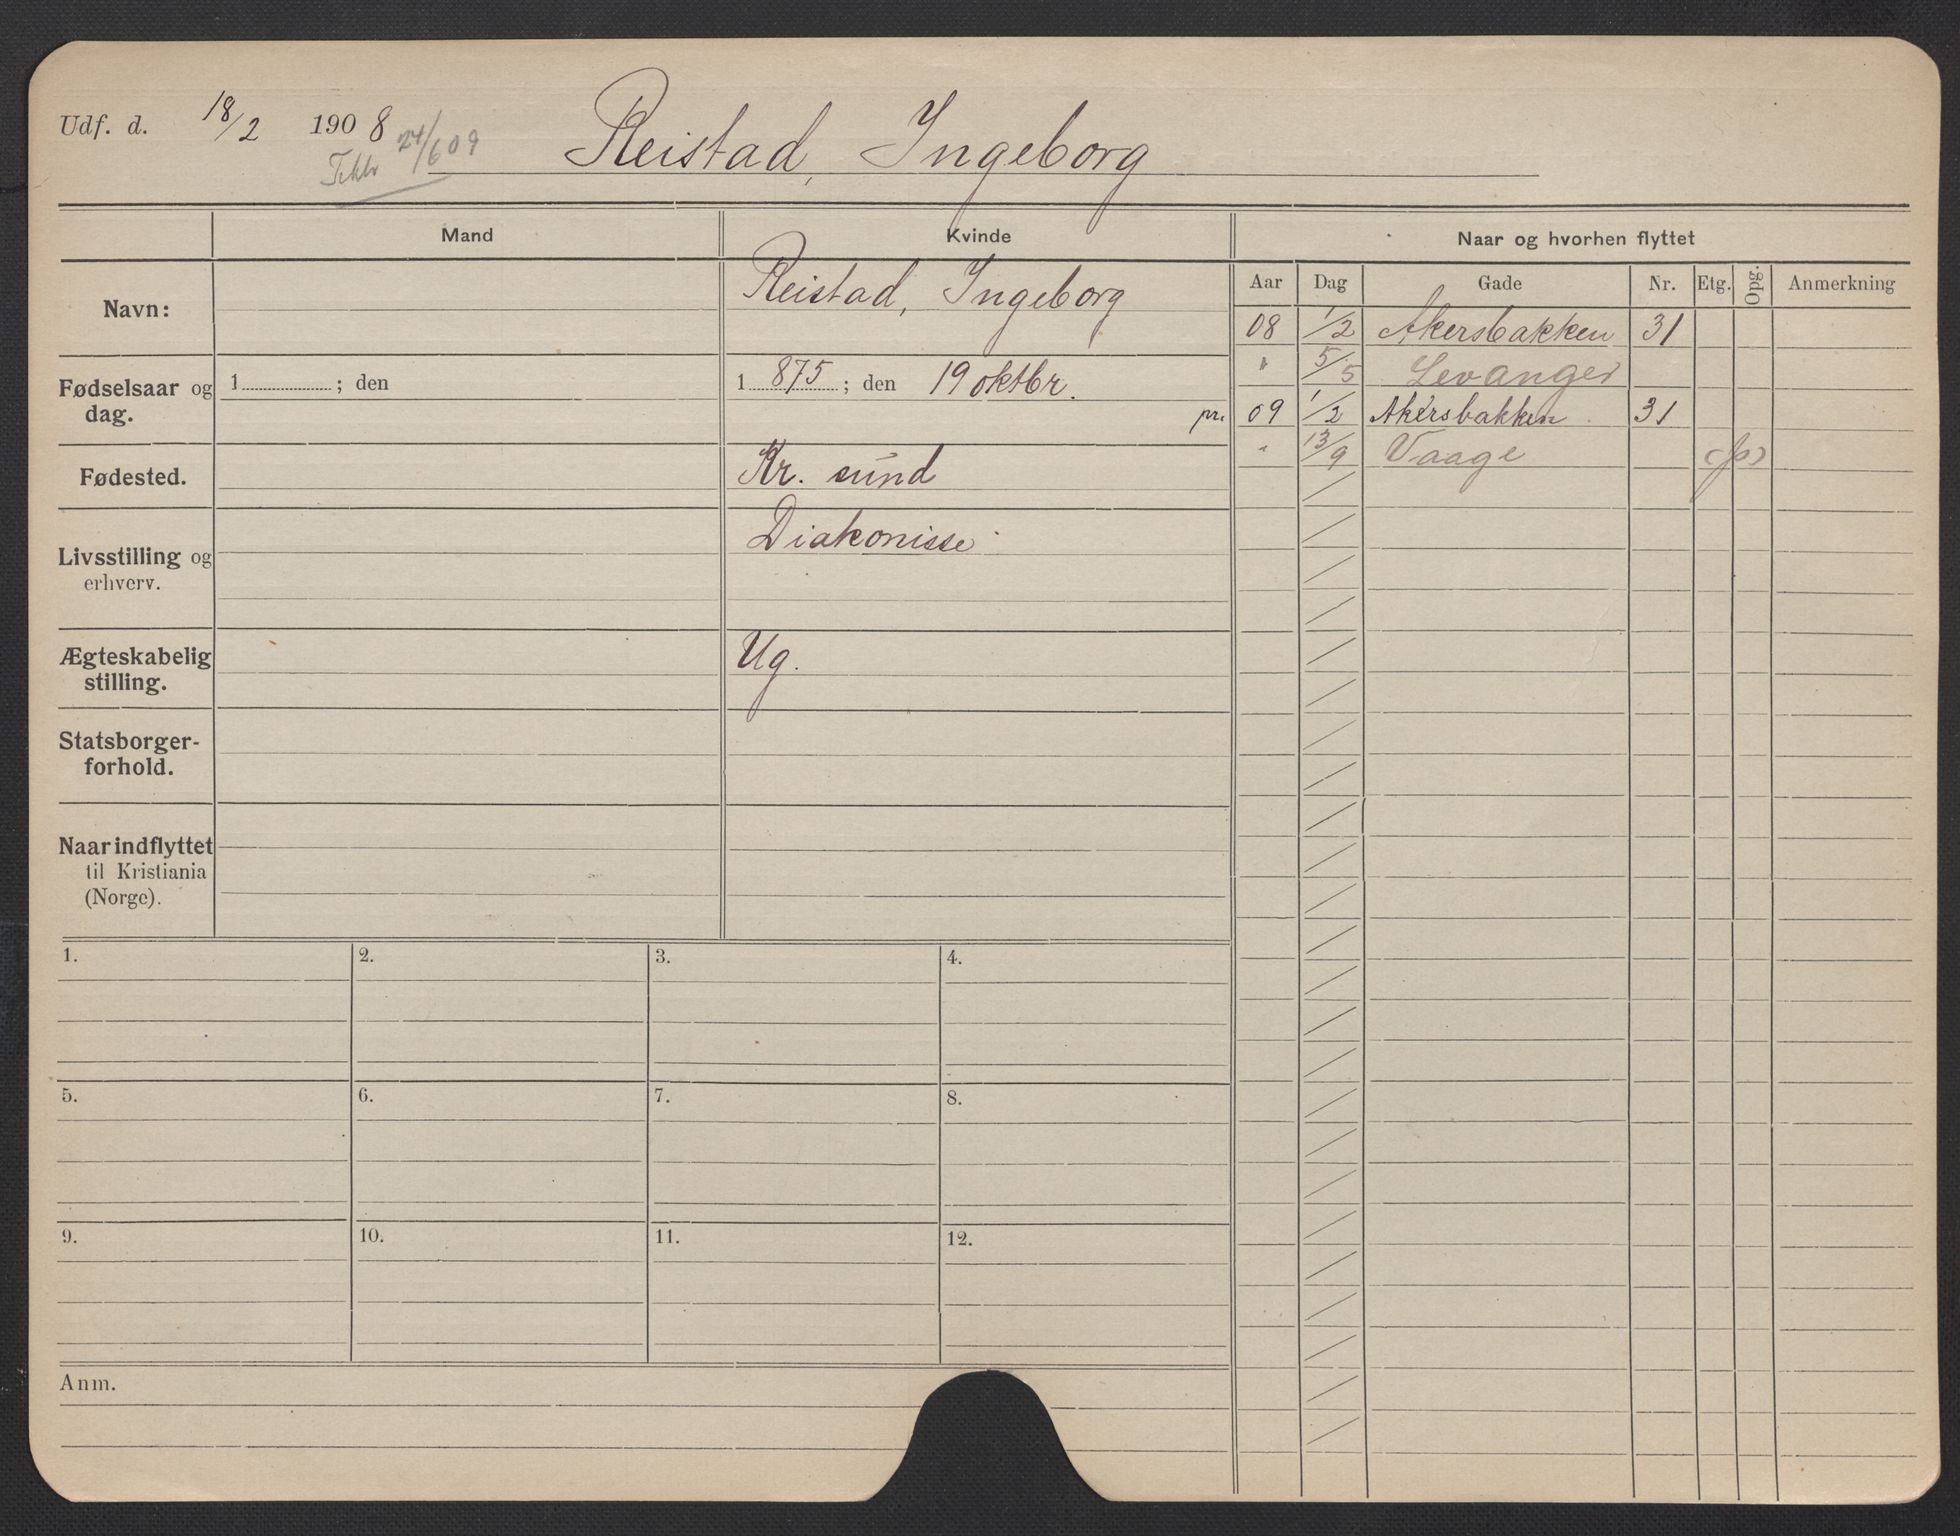 Udf. d. 18/2 1908 24/6 09
Reistad, Ingeborg
Mand Kvinde Naar og hvorhen flyttet
Aar Dag Gade Nr. Etg. Opg. Anmerkning
Navn: Reistad, Ingeborg
08 1/2 Akersbakken 31
Fødselsaar og dag. 1 ; den 1 875 ; den 19 oktbr.
" 5/5 Levanger
pr. 09 1/2 Akersbakken 31
" 13/9 Vaage
Fødested. Kr. sund
Livsstilling og erhverv. Diakonisse
Ægteskabelig stilling. Ug.
Statsborger-
forhold.
Naar indflyttet
til Kristiania
(Norge).
1. 2. 3. 4.
5. 6. 7. 8.
9. 10. 11. 12.
Anm.